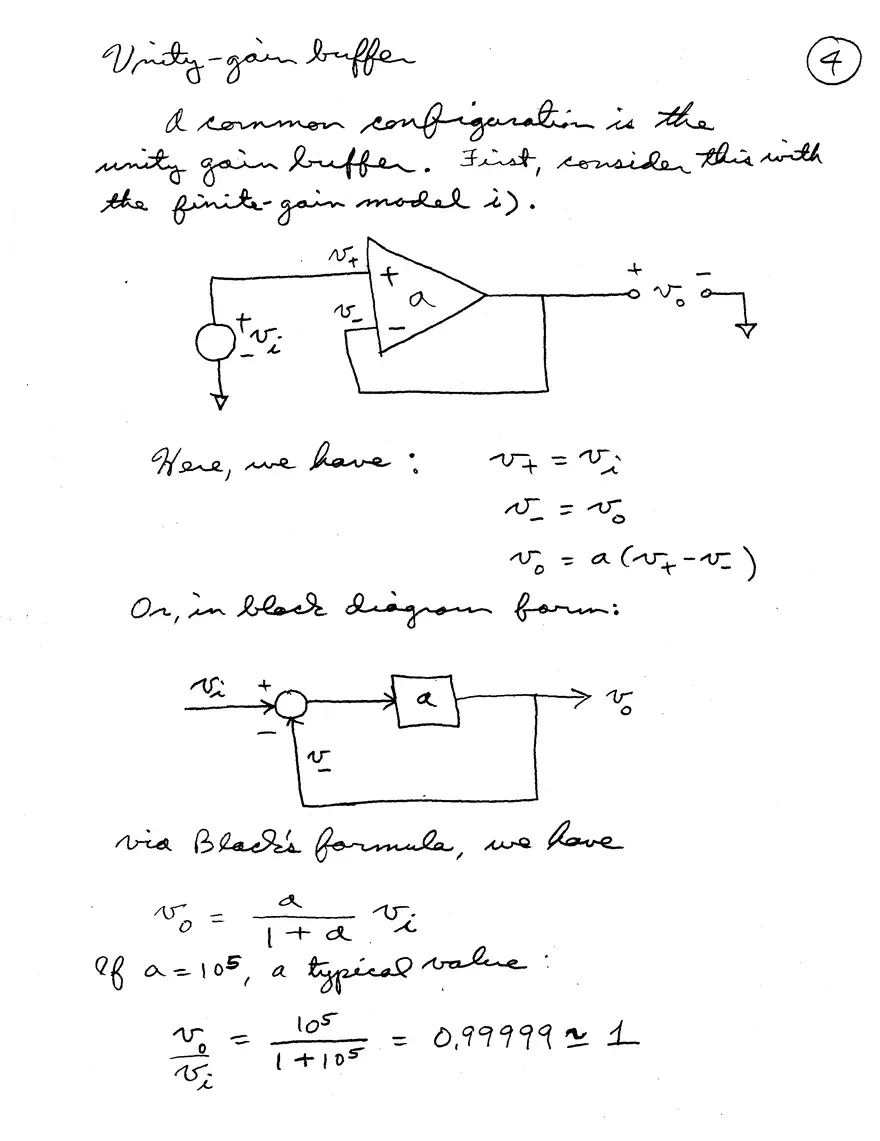 Unity-gain buffer
4
A common configuration is the
unity gain buffer. First, consider this with
the finite-gain model i).
v₊ + a + v₀ -
v₋ -
+ vᵢ -
Here, we have: v₊ = vᵢ
v₋ = v₀
v₀ = a(v₊ - v₋)
Or, in block diagram form:
vᵢ + a v₀
-
v₋
via Black's formula, we have
v₀ = a / (1 + a) vᵢ
If a = 10⁵, a typical value:
v₀/vᵢ = 10⁵ / (1 + 10⁵) = 0.99999 ≃ 1